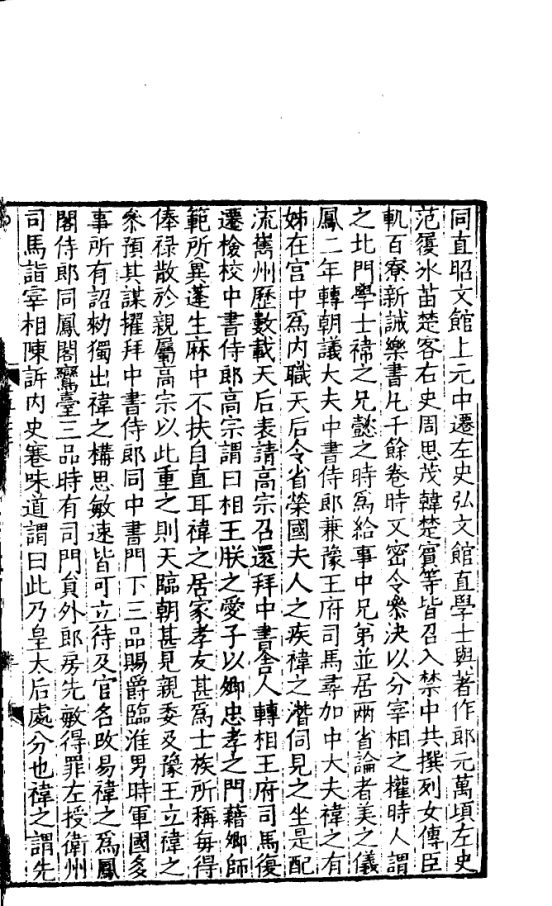 同直昭文館上元中遷左史弘文館直學士與著作郎元萬頃左史
范履冰苗楚客右史周思茂韓楚賓等皆召入禁中共撰列女傳臣
軌百寮新誡樂書凡千餘卷時又密令參決以分宰相之權時人謂
之北門學士禕之兄懿之時爲給事中兄弟並居兩省論者美之儀
鳳二年轉朝議大夫中書侍郎兼豫王府司馬尋加中大夫禕之有
姊在宫中爲内職天后令省榮國夫人之疾禕之潛伺見之坐是配
流巂州歷數載天后表請高宗召還拜中書舍人轉相王府司馬復
遷檢校中書侍郎高宗謂曰相王朕之愛子以卿忠孝之門藉卿師
範所異蓬生麻中不扶自直耳禕之居家孝友甚爲士族所稱每得
俸禄散於親屬高宗以此重之則天臨朝甚見親委及豫王立禕之
叅預其謀擢拜中書侍郎同中書門下三品賜爵臨淮男時軍國多
事所有詔勑獨出禕之構思敏速皆可立待及官名改易禕之爲鳳
閣侍郎同鳳閣鸞臺三品時有司門貟外郎房先敏得罪左授衛州
司馬詣宰相陳訴内史騫味道謂曰此乃皇太后處分也禕之謂先